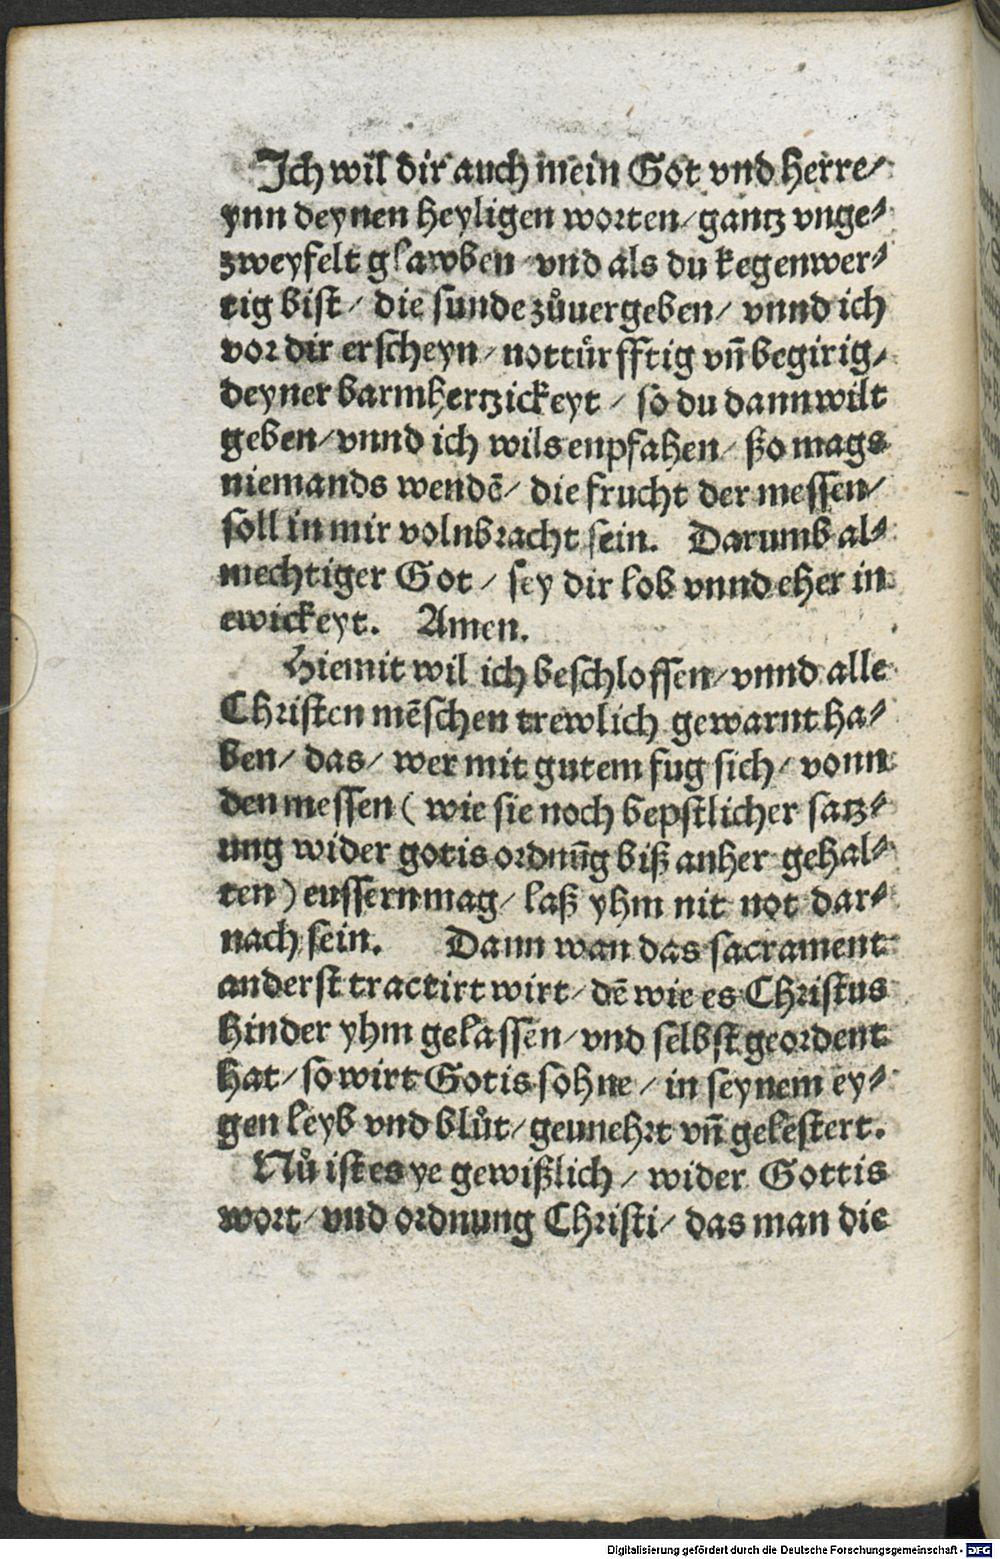 Ich wil dir auch mein Got vnd herre/
ynn deynen heyligen worten/ gantz vnge⸗
zweyfelt glawben vnd als du kegenwer⸗
tig bist/ die sunde zůuergeben/ vnnd ich
vor dir erscheyn/ nottürfftig vn̄ begirig/
deyner barmhertzickeyt/ so du dann wilt
geben/ vnnd ich wils enpfahen/ ßo mags
niemands wendē/ die frucht der messen/
soll in mir volnbracht sein. Darumb al⸗
mechtiger Got/ sey dir lob vnnd eher in
ewickeyt. Amen.
Hiemit wil ich beschlossen/ vnnd alle
Christen mēschen trewlich gewarnt ha⸗
ben/ das/ wer mit gutem fug sich/ vonn
den messen ( wie sie noch bepstlicher satz⸗
ung wider gotis ordnūg biß anher gehal⸗
ten ) eussern mag/ laß yhm nit not dar⸗
nach sein. Dann wan das sacrament
anderst tractirt wirt/ dē wie es Christus
hinder yhm gelassen/ vnd selbst geordent
hat/ so wirt Gotis sohne/ in seynem ey⸗
gen leyb vnd blůt/ geunehrt vn̄ gelestert.
Nů ist es ye gewißlich/ wider Gottis
wort/ vnd ordnung Christi/ das man die
Digitalisierung gefördert durch die Deutsche Forschungsgemeinschaft - DFG